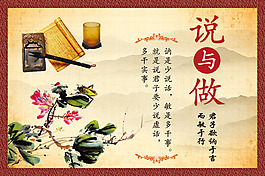 说与做
君子欲讷于言
而敏于行
讷是少说话，敏是多干事。
就是说君子要少说虚话，
多干实事。